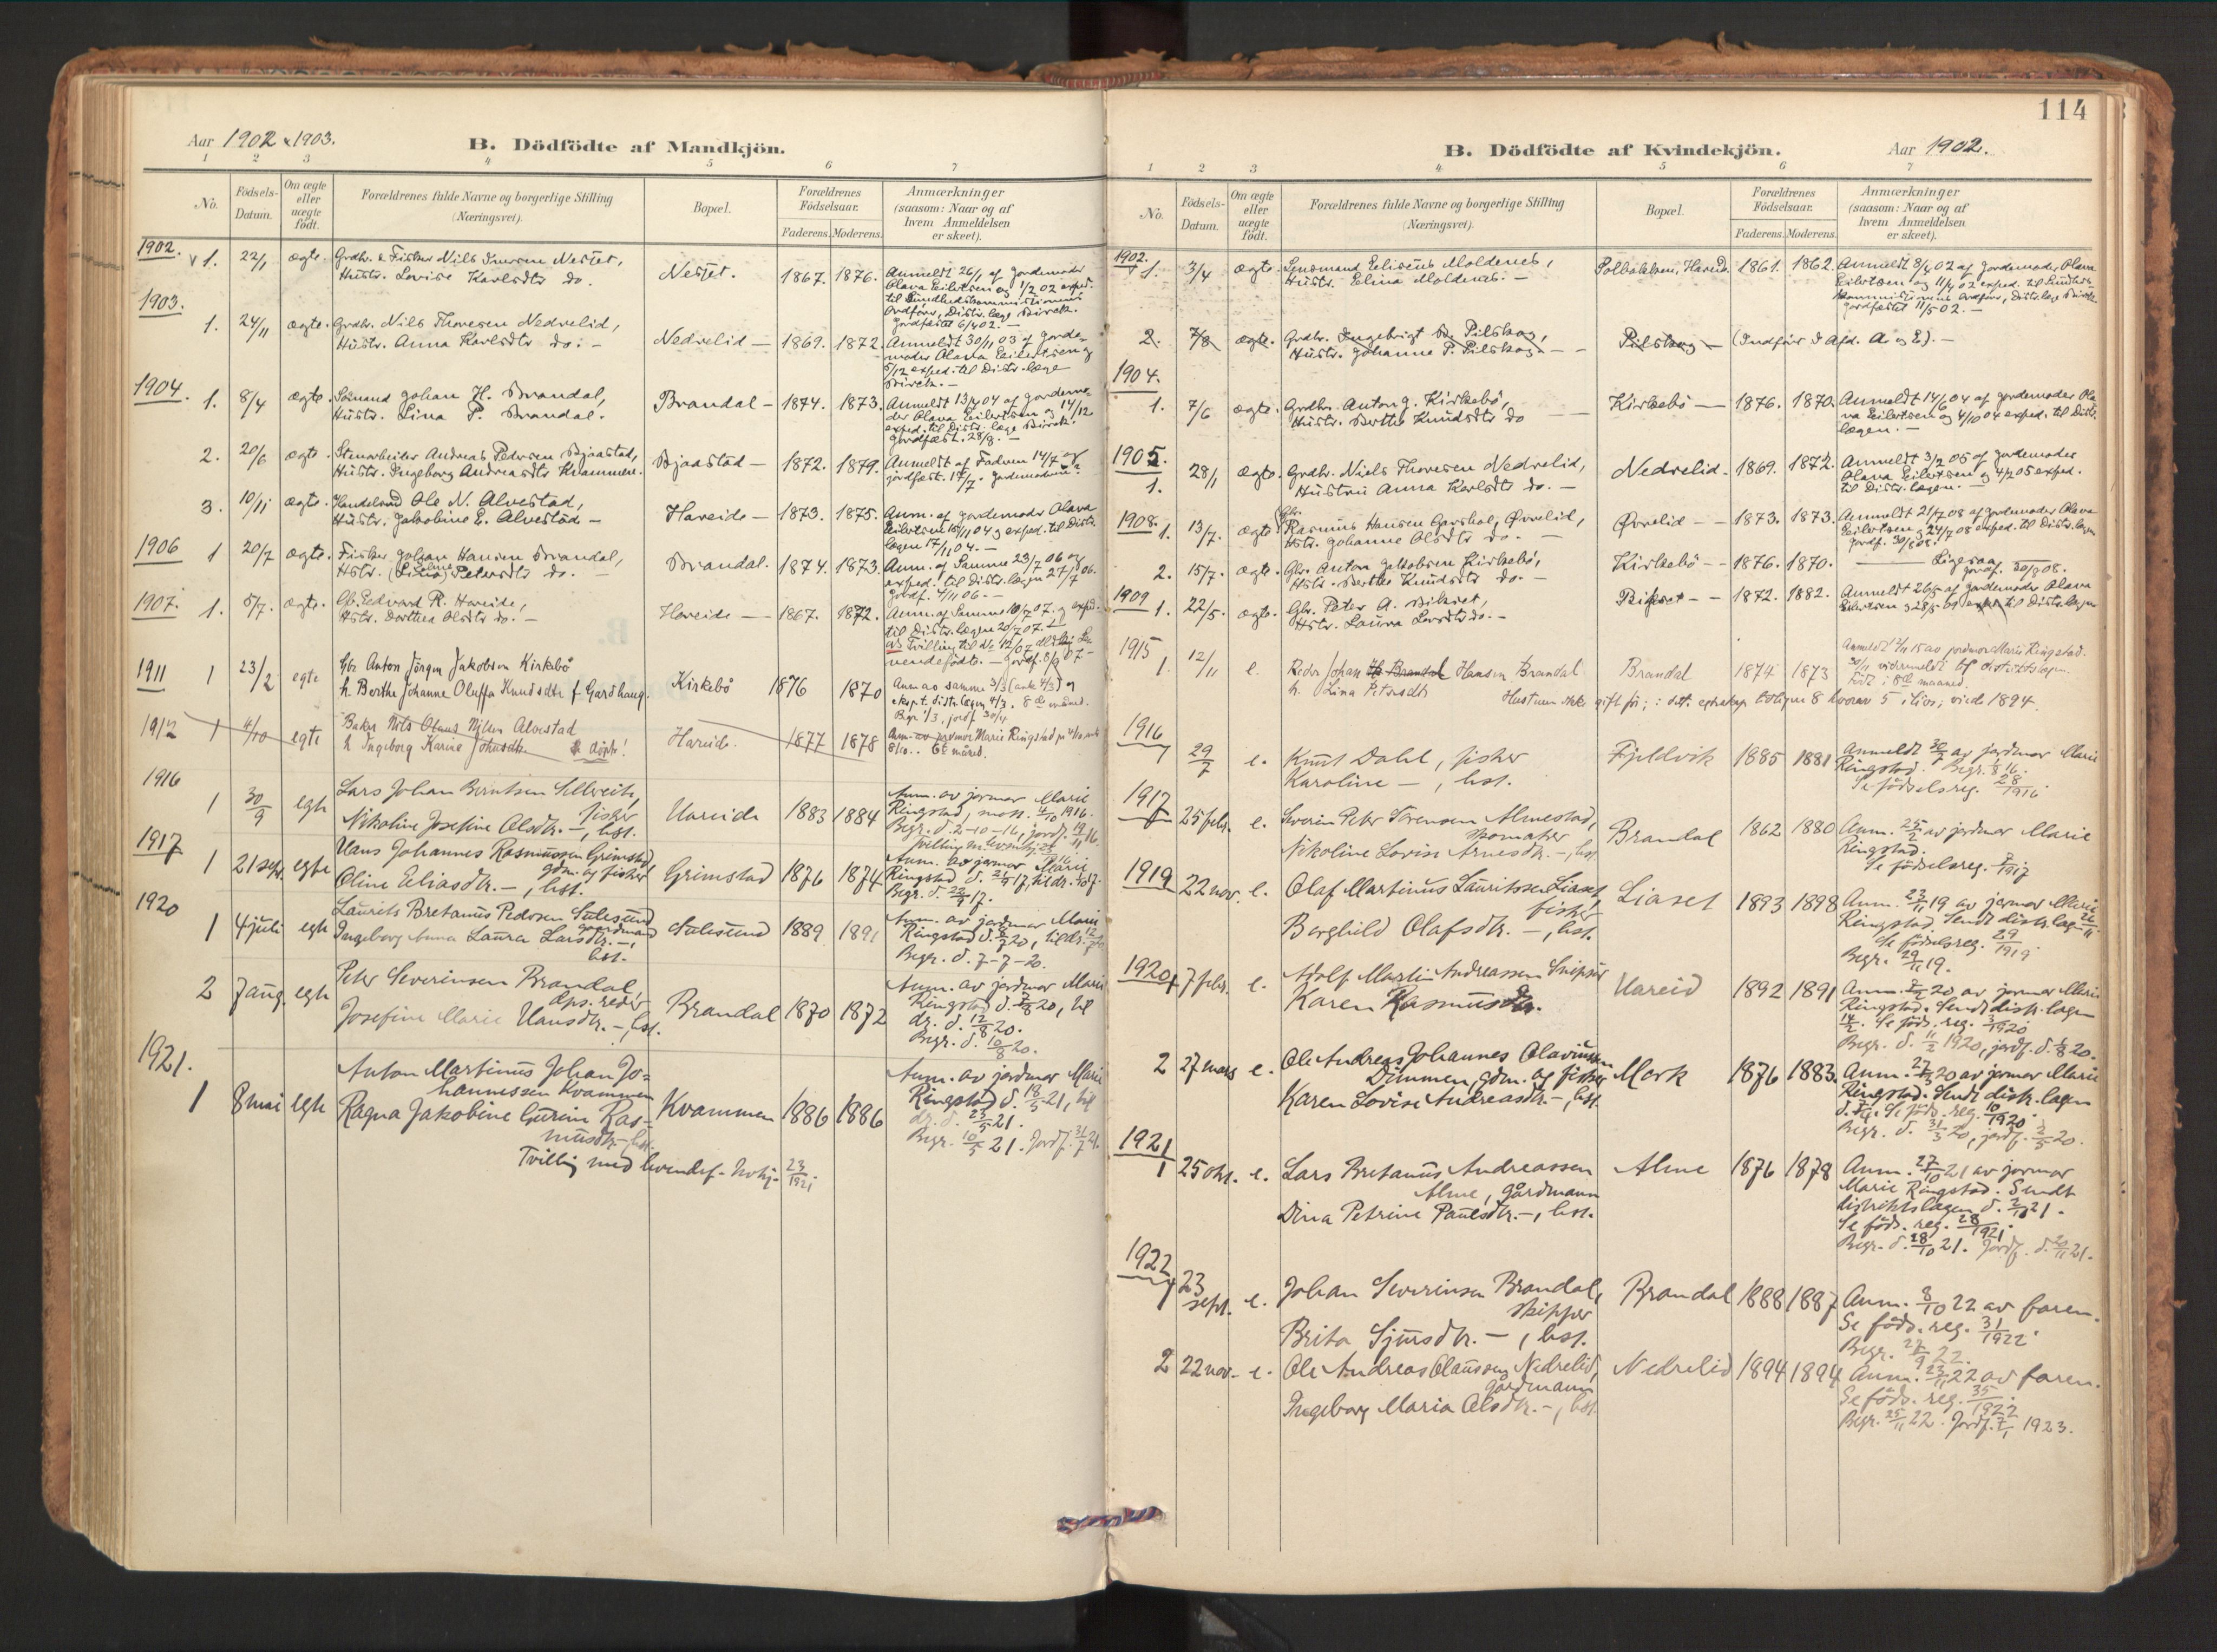 Aar 1902 & 1903.
B. Dödfödte af Mandkjön.
1 2 3 4 5 6 7
No.
Födsels-Datum.
Om ægte eller uægte födt.
Forældrenes fulde Navne og borgerlige Stilling
(Næringsvei).
Bopæl.
Forældrenes Födselsaar.
Faderens. Moderens.
Anmærkninger
(saasom: Naar og af
hvem Anmeldelsen
er skeet).
1902.
1. 22/1 ægte. Grdbr. & Fisker Nils Iversen Nesset,
Hustr. Lovise Karlsdtr do.
Nesset. 1867. 1876.
Anmeldt 26/1 af Jordemoder
Olava Eilertsen og 1/2 02 exped.
til Sundhedskommissionens
Ordförer, Distr. læge Birch.
Jordfæstet 6/4 02. —
1903.
1. 24/11 ægte. Grdbr. Nils Thoresen Nedrelid,
Hustr. Anna Karlsdtr do. —
Nedrelid — 1869. 1872.
Anmeldt 30/11 03 af Jorde-
moder Olava Eilertsen og
5/12 exped. til Distr. læge
Birch. —
1904.
1. 8/4 ægte. Sömand Johan H. Brandal,
Hustr. Lina P. Brandal.
Brandal — 1874. 1873.
Anmeldt 13/4 04 af Jordemo-
der Olava Eilertsen og 14/12
exped. til Distr. læge Birch.
Jordfæst. 28/8. —
2. 20/6 ægte. Stenarbeider Andreas Pedersen Bjaastad,
Hustr. Ingeborg Andreasdtr Kvammen.
Bjaastad — 1872. 1879.
Anmeldt af Faderen 14/7 og
jordfæst. 17/7.
3. 10/11 ægte. Handelsmd Ole N. Alvestad,
Hustr. Jakobine E. Alvestad —
Hareide — 1873. 1875.
Anm. af Jordemoder Olava
Eilertsen 15/11 04 og exped. til Distr.
lægen 17/11 04. —
1906
1 20/7 ægte. Fisker Johan Hansen Brandal,
Hstr. (Lina) Petersdtr do. —
Brandal. 1874. 1873.
Anm. af Samme 23/7 06 og
exped. til Distr. lægen 27/7 06.
Jordf. 4/11 06. —
1907.
1. 5/7. ægte. Gbr. Edvard R. Hareide,
Hstr. Dorthea Olsdtr do. —
Hareide — 1867. 1872.
Anm. af Samme 10/7 07. og exped.
til Distr. lægen 20/7 07.
Tvilling til No 12/07 blandt Le-
vendefödte. — Jordf. 8/9 07 —
1911
1 23/2 egte Gbr Anton Jörgen Jakobsen Kirkebö
h. Berthe Johanne Oluffa Knudsdtr f. Garshaug.
Kirkebö 1876 1870
Anm av samme 3/3 (ank 4/3) og
ekspt. distr. lægen 4/3. 8de måned.
Bgr. 1/3, jordf. 30/4
1912
1 4/10 egte Baker Nils Olaus Nilsen Alvestad
h Ingeborg Karine Johnsdtr döpt!
Hareide. 1877 1878
Anm. av jordmor Marie Ringstad
8/10. 6te måned.
1916
1 30/9 egte Lars Johan Berntsen Sellereite,
fisker
Nikoline Josefine Olsdtr. —, hst.
Hareide 1883 1884
Anm. av jormor Marie
Ringstad, mott. 4/10 1916.
Begr. d. 2-10-16, jordf. 19/11 16.
1917
1 21 sept. egte Hans Johannes Rasmussen Grimstad,
gdm. og fisker
Oline Eliasdtr. —, hst.
Grimstad 1876 1874
Anm. av jormor Marie
Ringstad
Begr. d. 22/9 17.
1920
1 4 juli egte Laurits Bretanus Pedersen Sulesund
gaardmand
Ingeborg Anna Laura Larsdtr. —,
hst.
Sulesund 1889 1891
Anm. av jordmor Marie
Ringstad
Begr. d. 7-7-20.
2 7 aug. egte Peter Severinsen Brandal,
dps. reder
Josefine Marie Hansdtr. —, hst.
Brandal 1870 1872
Anm. av jordmor Marie
Ringstad d. 7/8 20, til
dr. d. 12/8 20.
Begr. d. 10/8 20.
1921.
1 8 mai egte Anton Martinus Johan Jo=
hannessen Kvammen
Ragna Jakobine Gurine Ras=
musdtr. —, hst.
Kvammen 1886 1886
Anm. av jordmor Marie
Ringstad d. 18/5 21, til
dr. d. 23/5 21.
Begr. 10/5 21. Jordf. 31/7 21.
Tvilling med levendef.
23/1921.
114
B. Dödfödte af Kvindekjön.
Aar 1902.
1 2 3 4 5 6 7
No.
Födsels-Datum.
Om ægte eller uægte födt.
Forældrenes fulde Navne og borgerlige Stilling
(Næringsvei).
Bopæl.
Forældrenes Födselsaar.
Faderens. Moderens.
Anmærkninger
(saasom: Naar og af
hvem Anmeldelsen
er skeet).
1902.
1. 3/4 ægte. Lensmand Eliseus Moldenes,
Hustr. Elina Moldenes. —
Hareid. 1861. 1862.
Anmeldt 8/4 02 af Jordemoder Olava
Eilertsen og 11/4 02 exped. til Sundheds-
kommissionens Ordförer, Distr. læge Birch.
Jordfæstet 11/5 02. —
2. 7/8 ægte. Grdbr. Ingebrigt Pilskog,
Hustr. Johanne P. Pilskog — —
Pilskog — (Indförd i Afd. A. og E). —
1904.
1. 7/6 ægte. Grdbr. Anton J. Kirkebö,
Hustr. Berthe Knudsdtr do
Kirkebö — 1876. 1870.
Anmeldt 14/6 04 af Jordemoder Ola-
va Eilertsen og 4/10 04 exped. til Distr.
lægen. —
1905.
1. 28/1 ægte. Grdbr. Niels Thoresen Nedrelid,
Hustru Anna Karlsdtr do. —
Nedrelid. 1869. 1872.
Anmeldt 3/2 05 af Jordemoder
Olava Eilertsen og 4/2 05 exped.
til Distr. lægen. —
1908.
1. 13/7. ægte Gbr. Rasmus Hansen Garshol, Øvrelid,
Hstr. Johanne Olsdtr do. —
Øvrelid — 1873. 1873.
Anmeldt 21/7 08 af Jordemoder Olava
Eilertsen, og 24/7 08 exped. til Distr. lægen
Jordf. 30/8 08.
2. 15/7. ægte. Gbr. Anton Jakobsen Kirkebö,
Hstr. Berthe Knudsdtr do. —
Kirkebö — 1876. 1870.
Ligesaa
Jordf. 30/8 08.
1909
1. 22/5. ægte. Gbr. Peter A. Bikset,
Hstr. Laura Larsdtr do. —
Bikset — — 1872. 1882.
Anmeldt 26/5 af Jordemoder Olava
Eilertsen og 28/5 09 exped. til Distr. lægen
1915
1. 12/11 e. Reder Johan Hansen Brandal
h. Lina Petersdtr
Brandal 1874 1873
Anmeldt 12/11 15 av jordmor Marie Ringstad.
30/11 vidermeldt til distriktslægen.
Född i 8de maaned.
1916
1 29/7 e. Knut Dahl, fisker
Karoline —, hst.
Fjeldvik 1885 1881
Anmeldt 30/7 av jordmor Marie
Ringstad. Begr. 1/8 16.
Se födselsreg. 28/1916.
1917
1 25 febr. e. Severin Peter Sörensen Almestad,
skomaker
Nikoline Lovise Arnesdtr. —, hst.
Brandal 1862 1880
Anm. 25/2 av jordmor Marie
Ringstad.
Se födselsreg. 7/1917
1919
1 22 nov. e. Olaf Martinus Lauritssen Liaset,
fisker
Borghild Olafsdtr. —, hst.
Liaset 1893 1898
Anm. 23/11 19 av jormor Marie
Ringstad. Sendt distr. lægen
Se födselsreg. 29/1919.
Begr. 29/11 19.
1920
1 7 febr. e. Adolf Martin Andreassen Snipsör
Karen Rasmusdtr.
Hareid 1892 1891
Anm. 7/2 20 av jormor Marie
Ringstad. Sendt distr. lægen
14/2. Se föds. reg. 3/1920
Begr. d. 11/2 1920, jordf. d. 6/8 20.
2 27 mars e. Ole Andreas Johannes Olavussen
Dimmen, gdm. og fisker
Karen Lovise Andreasdtr. —, hst.
Mork 1876 1883.
Anm. 27/3 20 av jormor Marie
Ringstad. Sendt distr. lægen
Se föds. reg. 10/1920.
Begr. d. 31/3 20, jordf. 2/5 20.
1921
1 25 okt. e. Lars Bretanus Andreassen
Alme, gårdmann
Dina Petrine Paulsdtr. —, hst.
Alme 1876 1878
Anm. 27/10 21 av jormor
Marie Ringstad. Sendt
distriktslægen
Se föds. reg. 28/1921.
Begr. d. 28/10 21. Jordf. d. 20/11 21.
1922
1 23 sept. e. Johan Severinsen Brandal,
skipper
Brita Sjursdtr. —, hst.
Brandal 1888 1887
Anm. 8/10 22 av faren.
Se föds. reg. 31/1922.
Begr. 27/9 22.
2 22 nov. e. Ole Andreas Olaussen Nedrelid,
gårdmann
Ingeborg Maria Olsdtr. —, hst.
Nedrelid 1894 1894
Anm. 23/11 22 av faren.
Se föds. reg. 35/1922
Begr. 25/11 22. Jordf. 7/1 1923.